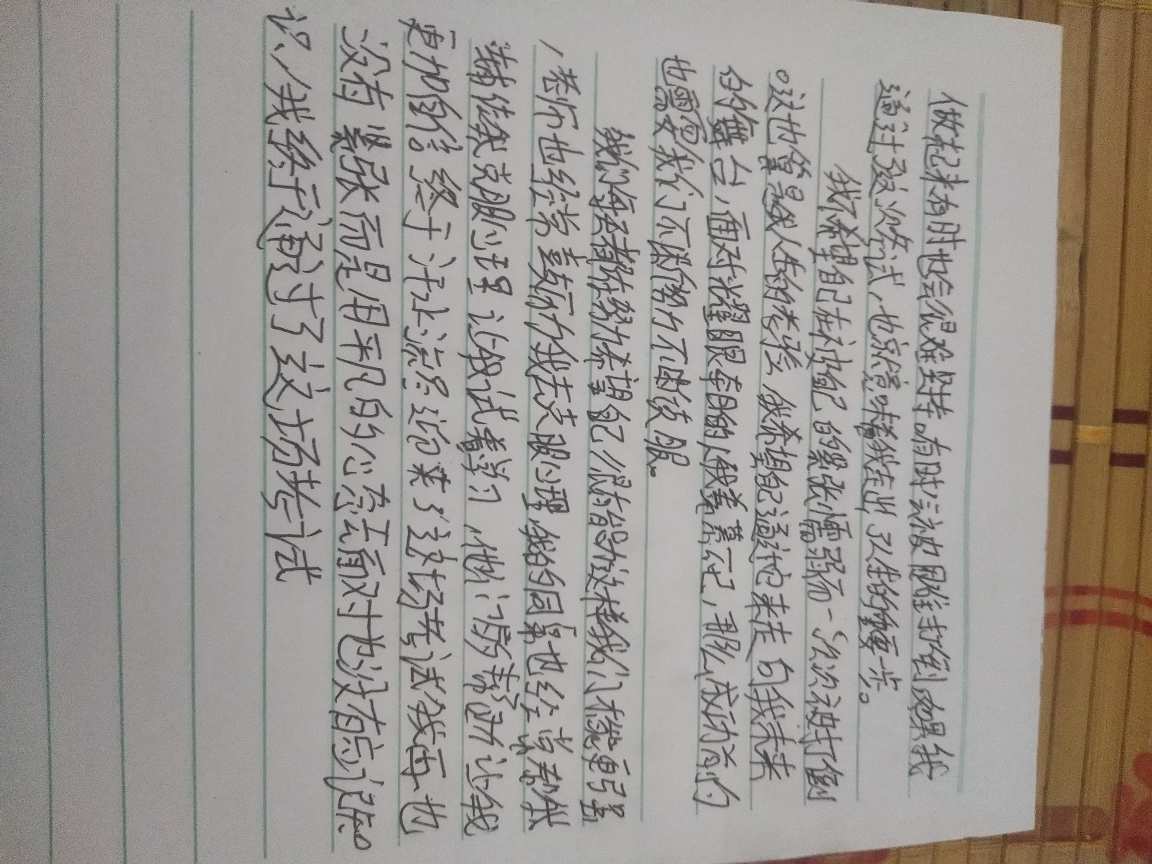 做起来有时也会很难坚持。有时会被困难打倒如果我
通过这次考试,也就意味着我走出了人生的重要一步。
我不希望自己在被自己的紧张懦弱而一次次被打倒
。这也算是我人生的考验,我希望自己通过它来走向我未来
的舞台,面对光耀眼夺目的人我羡慕不已,那么成功的
也需要我们不断努力不断。
我们每天都在努力希望自己很有能力这样我们才能更强
,老师也经常鼓励我去克服心理我的同桌也经常帮我
辅佐我克服心理让我试着学习,他们的帮助让我
更加自信终于让流迎来了这场考试我再也
没有紧张而是用平凡的心态面对也没有忘记知
识,我终于通过了这场考试